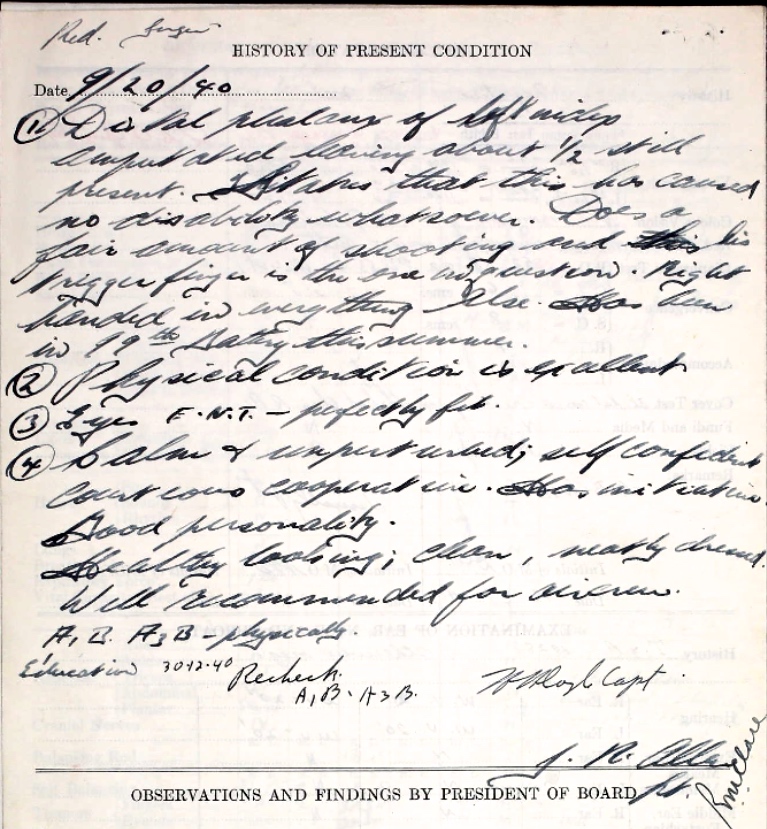 Red.
HISTORY OF PRESENT CONDITION
Date 9/20/40
(1) Distal phalanx of right index
amputated leaving about 1/2 still
present. States that this has caused
no disability whatsoever. Does a
fair amount of shooting and his
trigger finger is the one in question. Right
handed in everything else. Has been
in 99th Battery this summer.
(2) Physical condition is excellent
(3) Eyes E.N.T. - perfectly fit.
(4) Calm & unperturbed; self confident
courteous cooperative. Has initiative.
Good personality.
Healthy looking; clean, neatly dressed.
Well recommended for aircrew.
A,B. A3B - physically.
Education 30-12-40 Recheck
A,B. A3B. Capt.
J. R.
OBSERVATIONS AND FINDINGS BY PRESIDENT OF BOARD